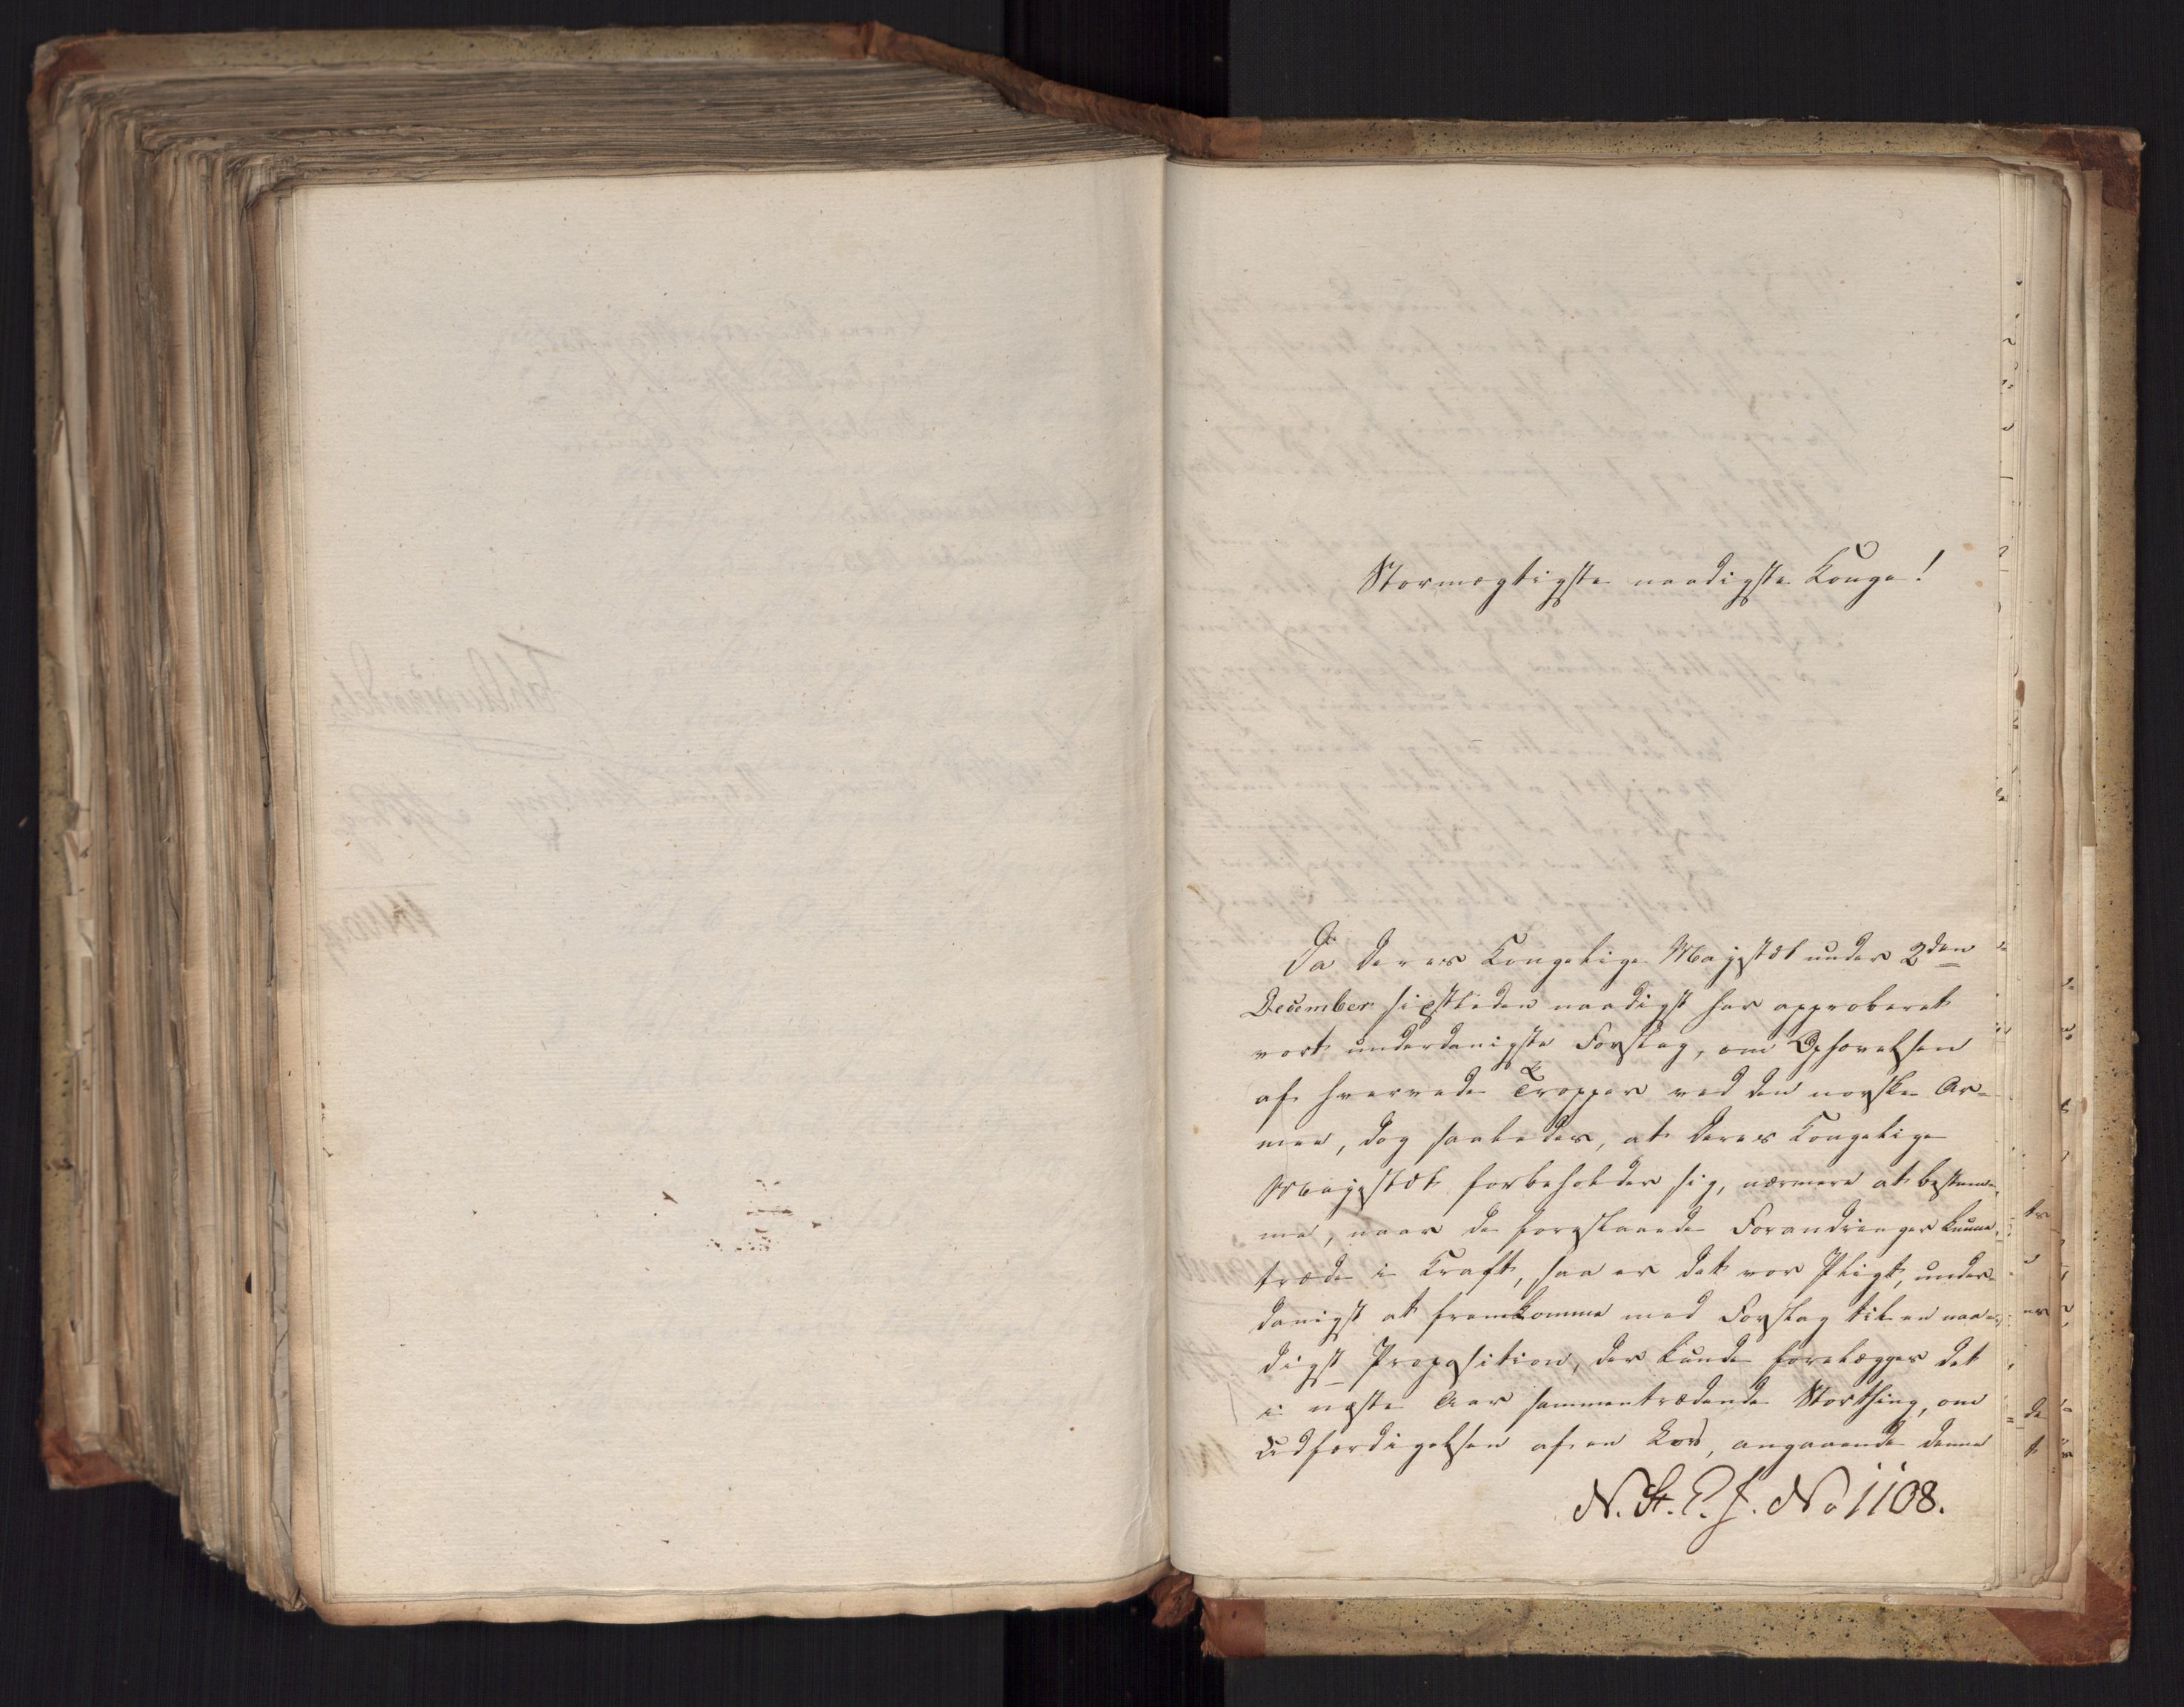 Stormægtigste naadigste Konge!
Da Deres Kongelige Majestæt under 2den
December sidstleden naadigst har approberet
vort underdanigste Forslag, om Ophævelsen
af hvervede Tropper ved den norske Ar-
mee, dog saaledes, at Deres Kongelige
Majestæt forbeholder sig, nærmere at bestem-
me, naar de foreslaaede Forandringer kunne
træde i Kraft, saa er det vor Pligt, under-
danigst at fremkomme med Forslag til en naa-
digst Proposition, der kunde forelægges det
i næste Aar sammentrædende Storthing, om
Udfærdigelsen af en Lov, angaaende denne
N. St. C. J. No 1108.